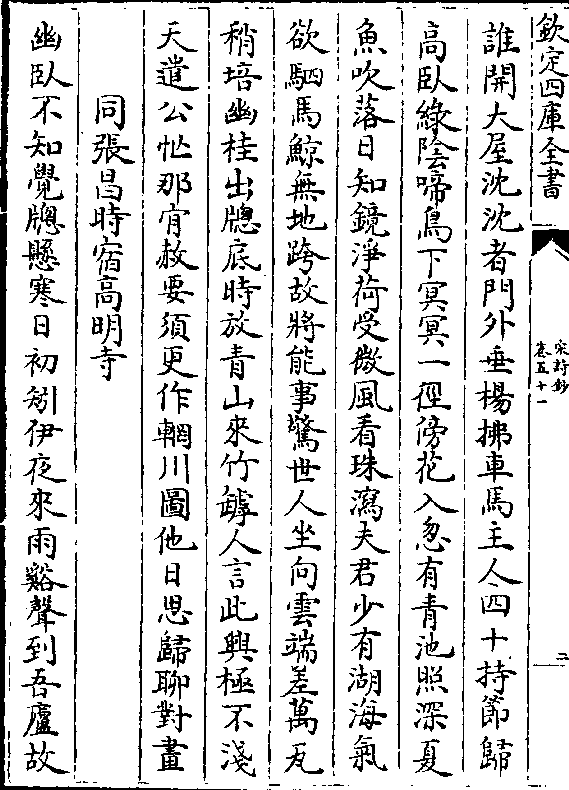 欽定四庫全書
宋詩鈔
卷五十一
二
誰開大屋沈沈者門外垂楊拂車馬主人四十持節歸
高臥綠陰啼鳥下冥冥一徑傍花入忽有青池照深夏
魚吹落日知鏡淨荷受微風看珠瀉夫君少有湖海氣
欲駟馬鯨無地跨故將能事驚世人坐向雲端差萬瓦
稍培幽桂出牕底時放青山來竹罅人言此興極不淺
天遣公忙那肎赦要須更作輞川圖他日思歸聊對畫
同張昌時宿高明寺
幽臥不知覺牕懸寒日初矧伊夜來雨谿聲到吾廬故